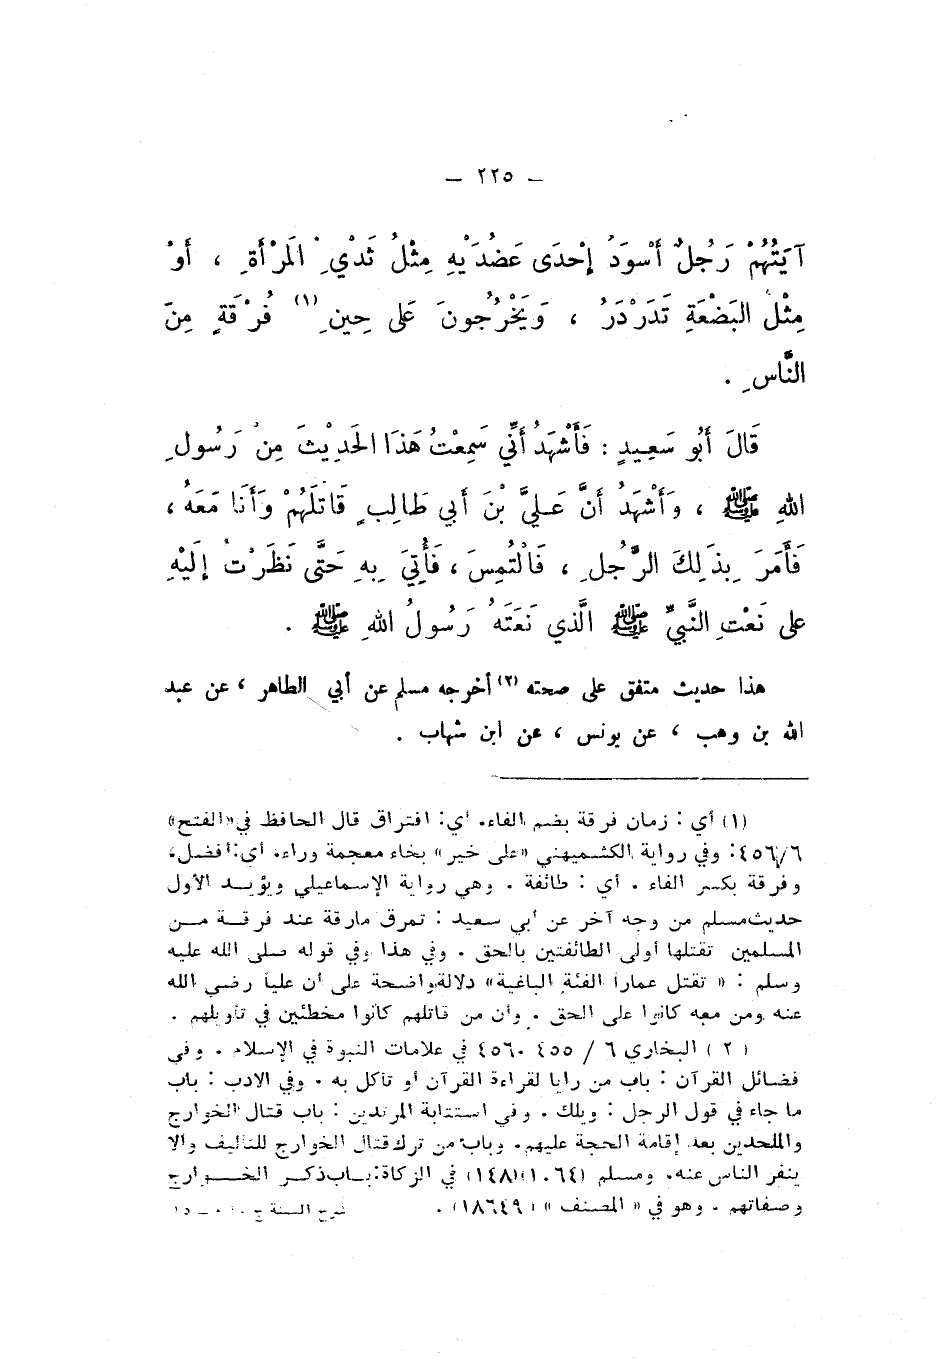 – ٢٢٥ –
آيَتُهُمْ رَجُلٌ أَسْوَدُ إِحْدَى عَضُدَيْهِ مِثْلُ ثَدْيِ الْمَرْأَةِ ، أَوْ
مِثْلُ البَضْعَةِ تَدَرْدَرُ ، وَيَخْرُجُونَ عَلَى حِينِ (١) فُرْقَةٍ مِنَ
النَّاسِ .
قَالَ أَبُو سَعِيدٍ : فَأَشْهَدُ أَنِّي سَمِعْتُ هَذَا الحَدِيْثَ مِنْ رَسُولِ
اللهِ ﷺ ، وَأَشْهَدُ أَنَّ عَلِيَّ بْنَ أَبي طَالِبٍ قَاتَلَهُمْ وَأَنَا مَعَهُ ،
فَأَمَرَ بِذَلِكَ الرَّجُلِ ، فَالْتُمِسَ ، فَأُتِيَ بِهِ حَتَّى نَظَرْتُ إِلَيْهِ
عَلى نَعْتِ النَّبِيِّ ﷺ الَّذي نَعَتَهُ رَسُولُ اللهِ ﷺ .
هذا حديث متفق على صحته (٢) أخرجه مسلم عن أبي الطاهر ، عن عبد
الله بن وهب ، عن يونس ، عن ابن شهاب .
(١) أي : زمان فرقة بضم الفاء. أي: افتراق قال الحافظ في «الفتح»
٤٥٦/٦: وفي رواية الكشميهني «على خير» بخاء معجمة وراء. أي:أفضل،
وفرقة بكسر الفاء . أي : طائفة . وهي رواية الإسماعيلي ويؤيد الأول
حديث مسلم من وجه آخر عن أبي سعيد : تمرق مارقة عند فرقة من
المسلمين تقتلها أولى الطائفتين بالحق . وفي هذا وفي قوله صلى الله عليه
وسلم : « تقتل عمارا الفئة الباغية» دلالة واضحة على أن عليا رضي الله
عنه ومن معه كانوا على الحق . وأن من قاتلهم كانوا مخطئين في تأويلهم .
( ٢ ) البخاري ٦ / ٤٥٥ ٤٥٦٠ في علامات النبوة في الإسلام . وفي
فضائل القرآن : باب من رايا لقراءة القرآن أو تأكل به . وفي الادب : باب
ما جاء في قول الرجل : ويلك . وفي استتابة المرتدين : باب قتال الخوارج
والملحدين بعد إقامة الحجة عليهم. وباب من ترك قتال الخوارج للتأليف والا
ينفر الناس عنه. ومسلم (١٠٦٤)(١٤٨) في الزكاة: باب ذكر الخوارج
وصفاتهم . وهو في « المصنف » (١٨٦٤٩) . شرح السنة ج ١٠ – ١٥